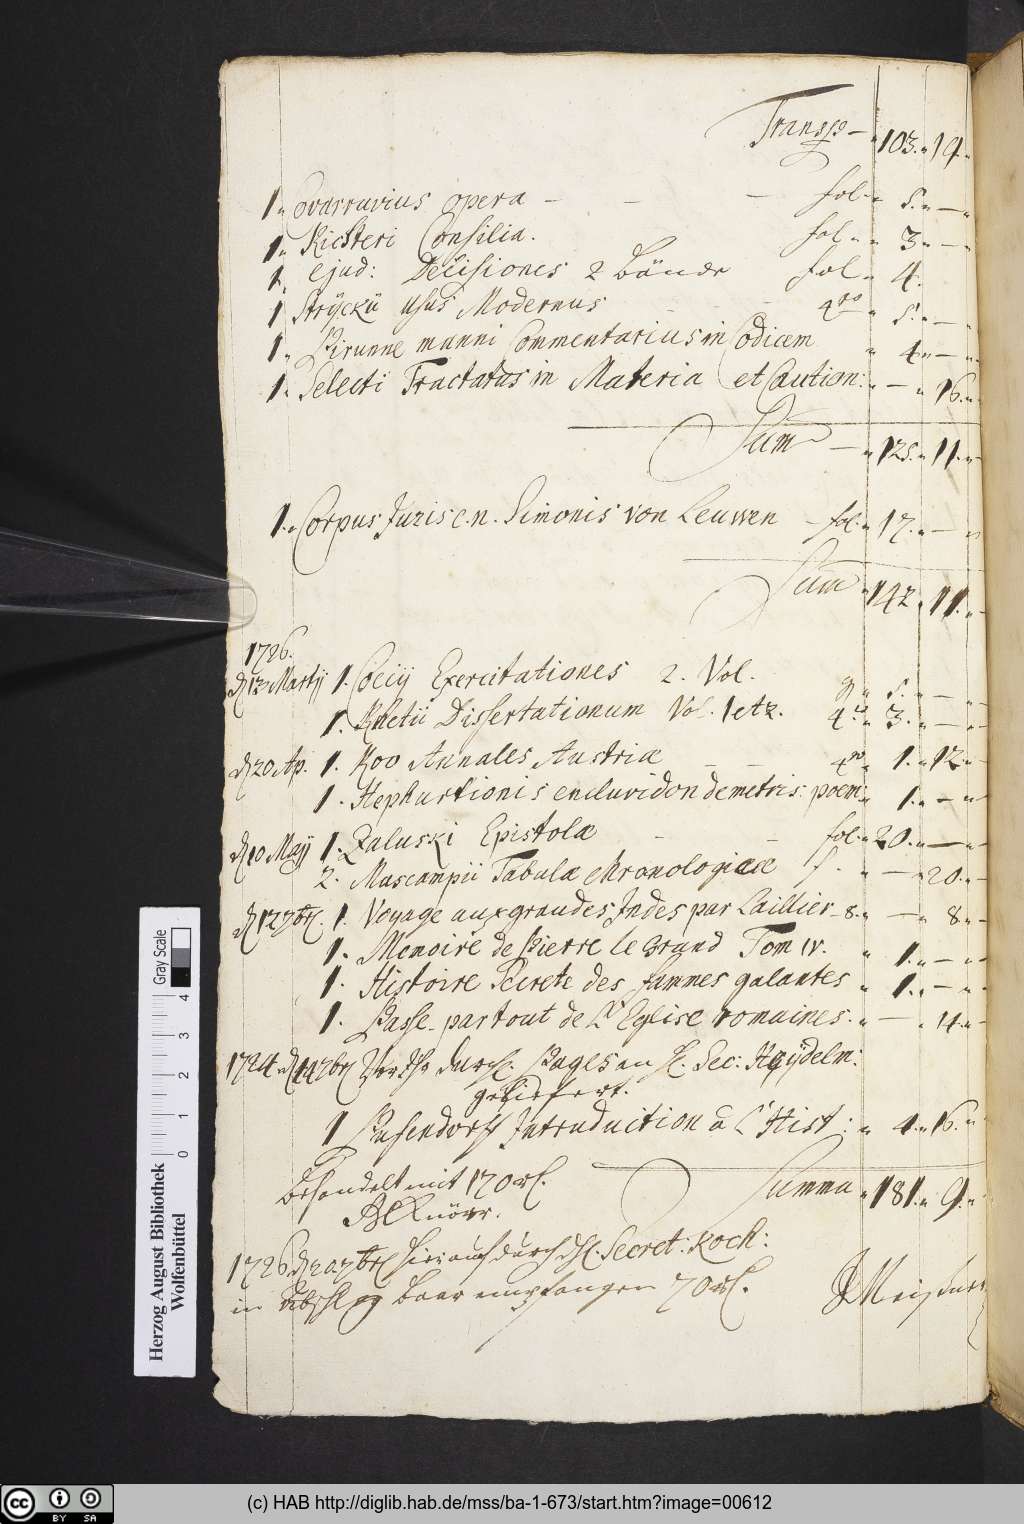 Transp. — " 103. " 19. "
1. " Covarruvius opera — — — fol. " 5. " — "
1. " Richteri Consilia. fol. " 3 " — "
1. Ejusd: Decisiones 2 Bände fol. " 4.
1 Stryckii Usus Modernus — — 4to " 5. " — "
1. " Brunnemanni Commentarius in Codicem " 4 " — "
1. Selecti Tractatus in Materia et Caution: " — " 16. "
Sum — " 125. " 11. "
1. " Corpus Juris c. n. Simonis von Leuwen — fol. " 17. " — "
Sum " 142 " 11. "
1726.
d 12 Martij 1. Coccij Exercitationes 2. Vol. " 5. " — "
1. Rhetii Dissertationum Vol. 1 et 2. 4to " 3. " — "
d 20 Ap. 1. Roo Annales Austriæ — — 4to " 1. " 12. "
1. Hephæstionis enchiridon de metris. poem " 1. " — "
d 10 Maij 1. Zaluski Epistolæ — — fol. " 20. " — "
2. Mascampii Tabulæ chronologicæ f. " — " 20. "
d 12 7br. 1. Voyage aux grandes Indes par Laillier — 8. " — " 8. "
1. Memoire de Pierre le Grand Tom IV. " 1. " — "
1. Histoire Secrete des fammes galantes " 1. " — "
1. Passe-partout de L'Eglise romaines. " — " 14. "
1724. d 14 7br Pages an H. Sec: Heydelm:
geliefert.
1 Pufendorff Introduction à l'Hist: " 1. " 16. "
Summa " 181. " 9. "
Behandelt mit 170 rl.
Knörr.
1726 d 20 7br hierauf durch H. Secret: Koch:
in baar empfangen 70 rl. Meisner
Herzog August Bibliothek
Wolfenbüttel
Gray Scale
0 1 2 3 4
cc BY SA
(c) HAB http://diglib.hab.de/mss/ba-1-673/start.htm?image=00612